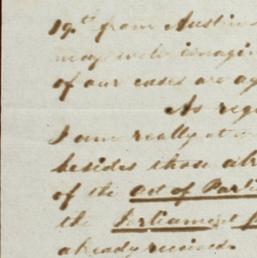 19th from Austin
may well imagin
of our cases are ag
As reg
I am really at
besides those alr
of the act of Parli
the Parliament
already received